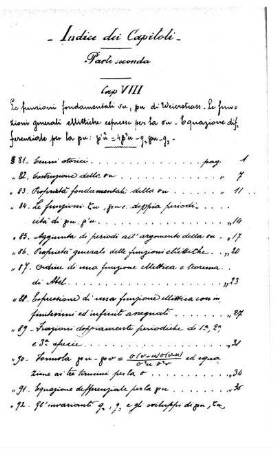 – Indice dei Capitoli –
Parte seconda
Cap VIII
Le funzioni fondamentali σu, pu di Weierstrass. Le fun=
zioni generali ellittiche espresse per la σu. Equazione dif=
ferenziale per la pu: p'²u = 4p³u - g₂pu - g₃
§ 81. Cenni storici . . . . pag. 1
" 82. Costruzione della σu . . . " 7
" 83. Proprietà fondamentali della σu . . " 11
" 84. Le funzioni ζu, pu: doppia periodi=
cità di pu, p'u . . . " 14
" 85. Aggiunta di periodi all'argomento della σu " 17
" 86. Proprietà generali delle funzioni ellittiche " 20
" 87. Ordine di una funzione ellittica e teorema
di Abel . . . " 23
" 88. Espressione di una funzione ellittica con in=
finitesimi ed infiniti assegnati . . " 27
" 89. Frazioni doppiamente periodiche di 1ª, 2ª
e 3ª specie . . . " 31
" 90. Formola pu - pv = σ(v-u)σ(v+u) / σ²u σ²v ed equa
zione ai tre termini per la σ . . " 34
" 91. Equazione differenziale per la pu . . " 36
" 92. Gl'invarianti g₂, g₃ e gli sviluppi di pu, ζu,